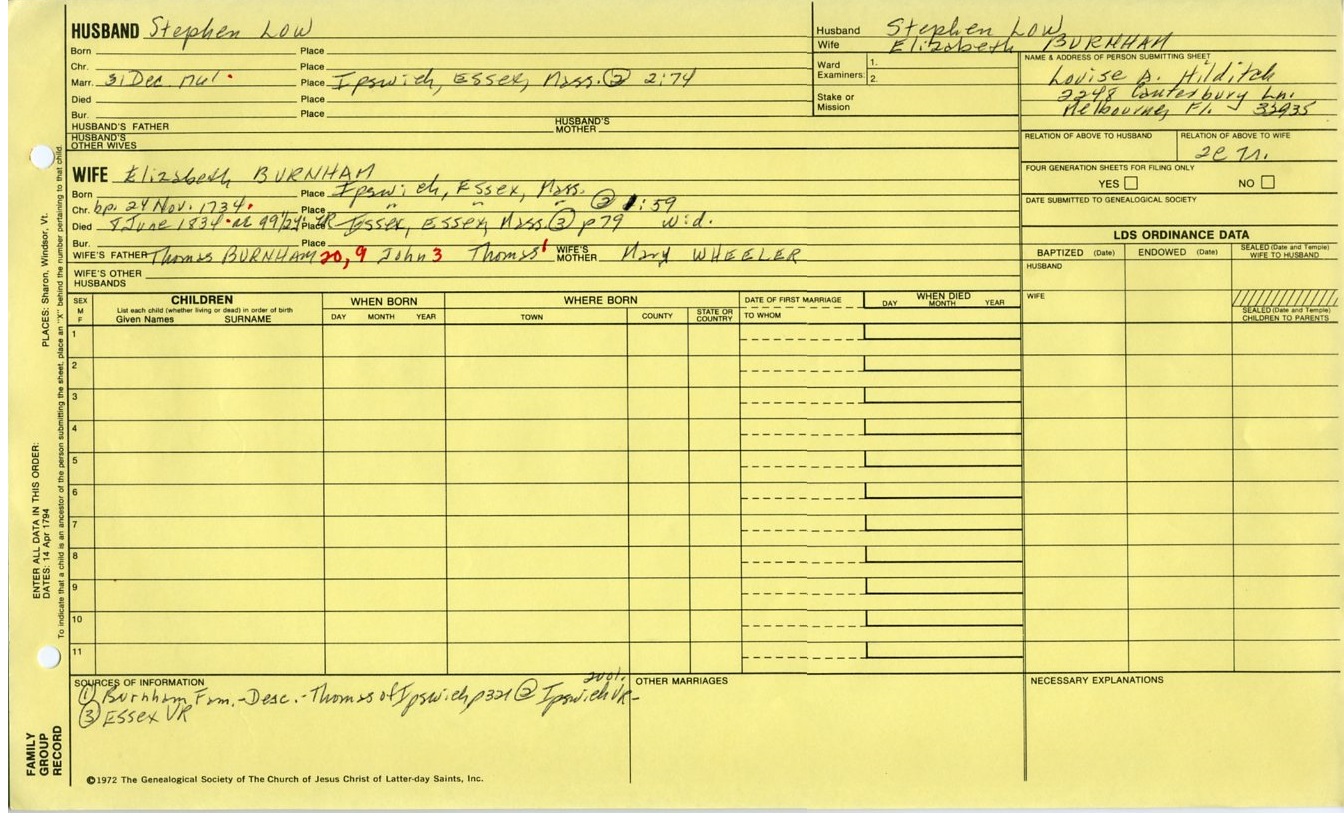 HUSBAND Stephen Low
Born Place
Chr. Place
Marr. 31 Dec. Place Ipswich, Essex, Mass. ② 2:74
Died Place
Bur. Place
HUSBAND'S FATHER HUSBAND'S MOTHER
HUSBAND'S OTHER WIVES
Husband Stephen Low
Wife Elizabeth BURNHAM
Ward Examiners: 1. 2.
Stake or Mission
NAME & ADDRESS OF PERSON SUBMITTING SHEET
Louise B. Hilditch
2248 Canterbury Ln.
Melbourne, Fl. 32935
RELATION OF ABOVE TO HUSBAND RELATION OF ABOVE TO WIFE
FOUR GENERATION SHEETS FOR FILING ONLY
YES NO
DATE SUBMITTED TO GENEALOGICAL SOCIETY
WIFE Elizabeth BURNHAM
Born Place Ipswich, Essex, Mass.
Chr. bp. 24 Nov. 1734. Place " " " ② 1:59
Died 8 June 1834 Place Essex, Essex, Mass. ③ p79 wid.
Bur. Place
WIFE'S FATHER Thomas BURNHAM 20, 9 John 3 Thomas 1 WIFE'S MOTHER Mary WHEELER
WIFE'S OTHER HUSBANDS
LDS ORDINANCE DATA
BAPTIZED (Date) ENDOWED (Date) SEALED (Date and Temple) WIFE TO HUSBAND
HUSBAND
WIFE
SEALED (Date and Temple) CHILDREN TO PARENTS
SEX M F CHILDREN WHEN BORN WHERE BORN DATE OF FIRST MARRIAGE WHEN DIED
List each child (whether living or dead) in order of birth
Given Names SURNAME DAY MONTH YEAR TOWN COUNTY STATE OR COUNTRY TO WHOM DAY MONTH YEAR
1
2
3
4
5
6
7
8
9
10
11
SOURCES OF INFORMATION
① Burnham Fam.-Desc.-Thomas of Ipswich p321 ② Ipswich VR-
2vol.
③ Essex VR
OTHER MARRIAGES
NECESSARY EXPLANATIONS
©1972 The Genealogical Society of The Church of Jesus Christ of Latter-day Saints, Inc.
FAMILY GROUP RECORD
ENTER ALL DATA IN THIS ORDER:
DATES: 14 Apr 1794 PLACES: Sharon, Windsor, Vt.
To indicate that a child is an ancestor of the person submitting the sheet, place an "X" behind the number pertaining to that child.